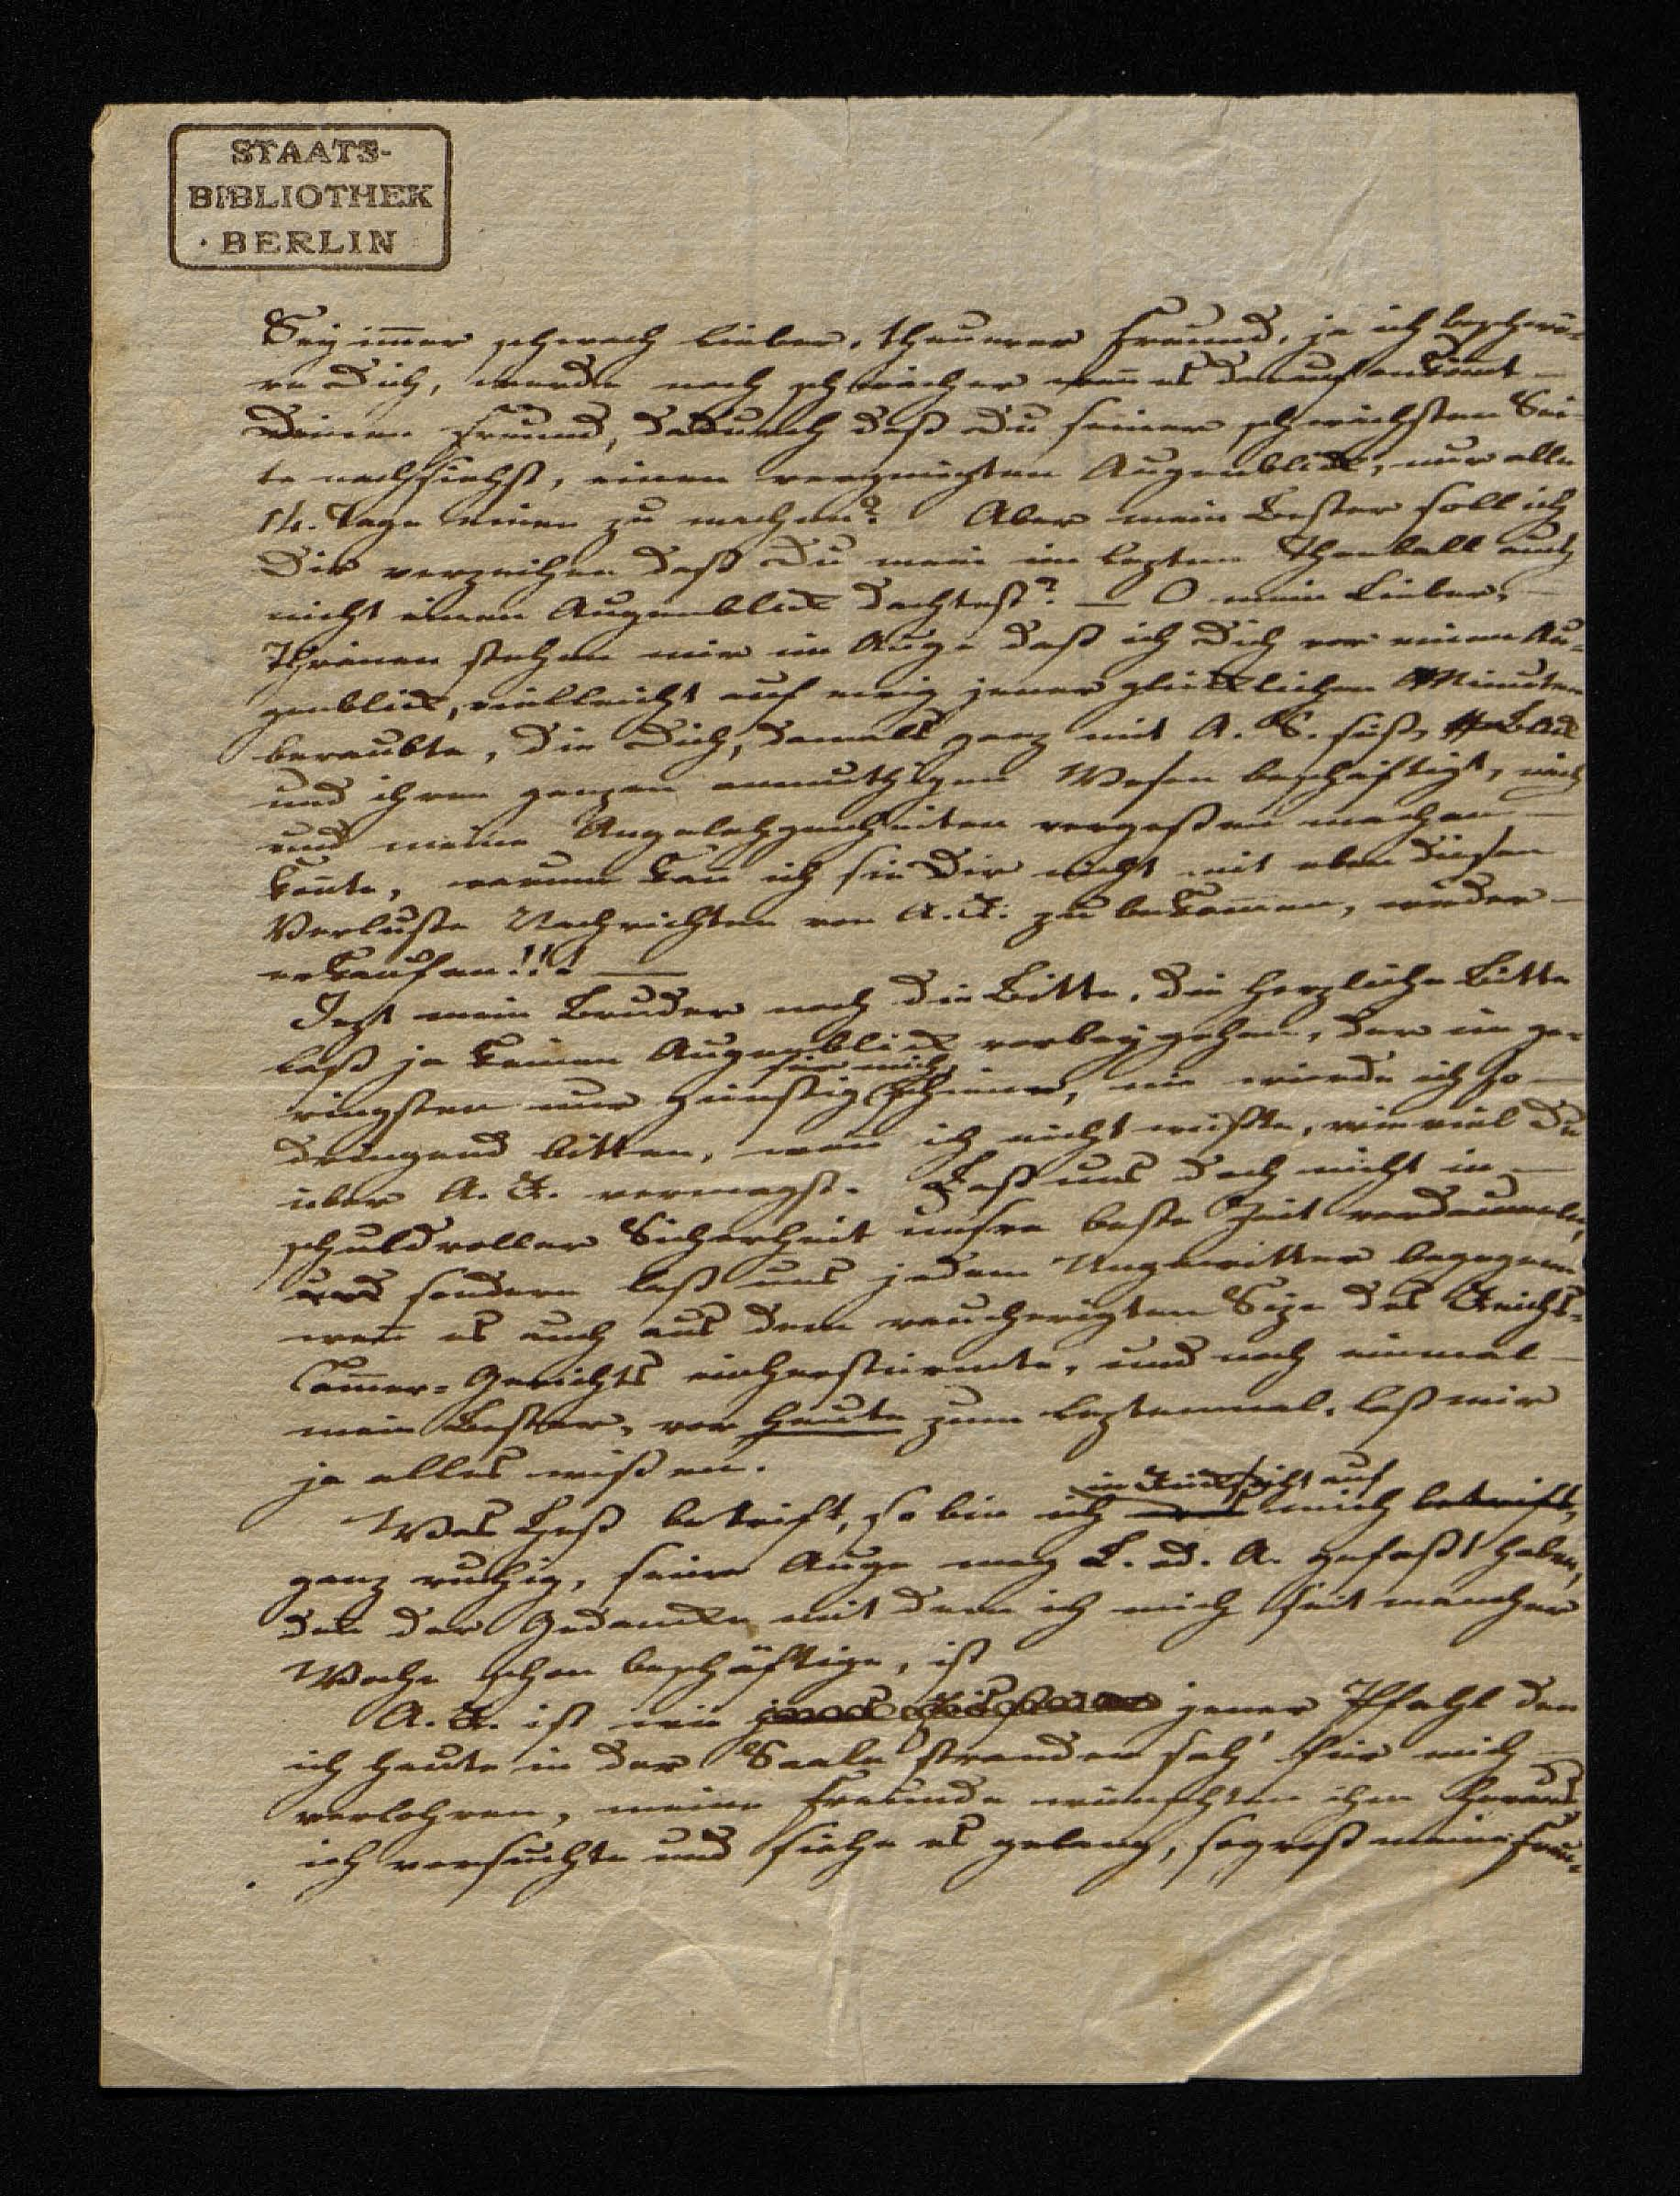 STAATS-
BIBLIOTHEK
BERLIN
Sey im̄er schwach lieber, theurer Freund, ja ich beschwö-
re Dich, werde noch schwächer wen̄ es darauf ankom̄t –
Deinen Freund, dadurch daß Du seiner schwächsten Sei-
te nachsiehst, einen vergnügten Augenblick, nur alle
14. Tage einen zu machen? Aber mein Bester soll ich
Dir verzeihen daß Du mein im lezten Theeball auch
nicht einen Augenblick dachtest? – O mein Lieber, –
Thränen stehen mir im Auge daß ich Dich vor einen Au-
genblick, vielleicht auf ewig jener glücklichen Minuten
beraubte, die Dich, damals ganz mit A. S. süß Blick
und ihren ganzen anmuthigen Wesen beschäftigt, mich
und meine Angelehgenheiten vergeßen machen –
kon̄te, warum kan̄ ich sie Dir nicht mit eben diesen
Verluste Nachrichten von A. R. zu bekom̄en, wieder –
erkaufen!!! –
Jezt mein Bruder noch die Bitte, die herzliche Bitte
laß ja keinen Augenblick vorbey gehen, der im ge-
für mich
ringsten nur günstig schiene, nie würde ich so –
dringend bitten, wen̄ ich nicht wüßte, wie viel Du
über A. R. vermagst. Laß uns doch nicht in –
schuldvoller Sicherheit unsre beste Zeit verdaumeln,
und sondern laß uns jedem Ungewitter begegnen
wen̄ es auch aus dem raucherigten Size des Reichs-
Cam̄er-Gerichts einherstürmte, und noch einmal –
mein Bester, vor heute zum leztenmal, laß mir
ja alles wißen.
in Rücksicht auf
Was Heß betrift, so bin ich was mich betrift,
ganz ruhig, seine Auge mag L. d. A. gefaßt haben,
den̄ der Gedancke mit dem ich mich seit mancher
Woche schon beschäftige, ist
A. R. ist wie jener Pfahl den
ich heute in der Saale stranden sah' für mich –
verlohren, meine Freunde wünschten ihn heraus
ich versuchte und siehe es gelang, so groß meine Freu-